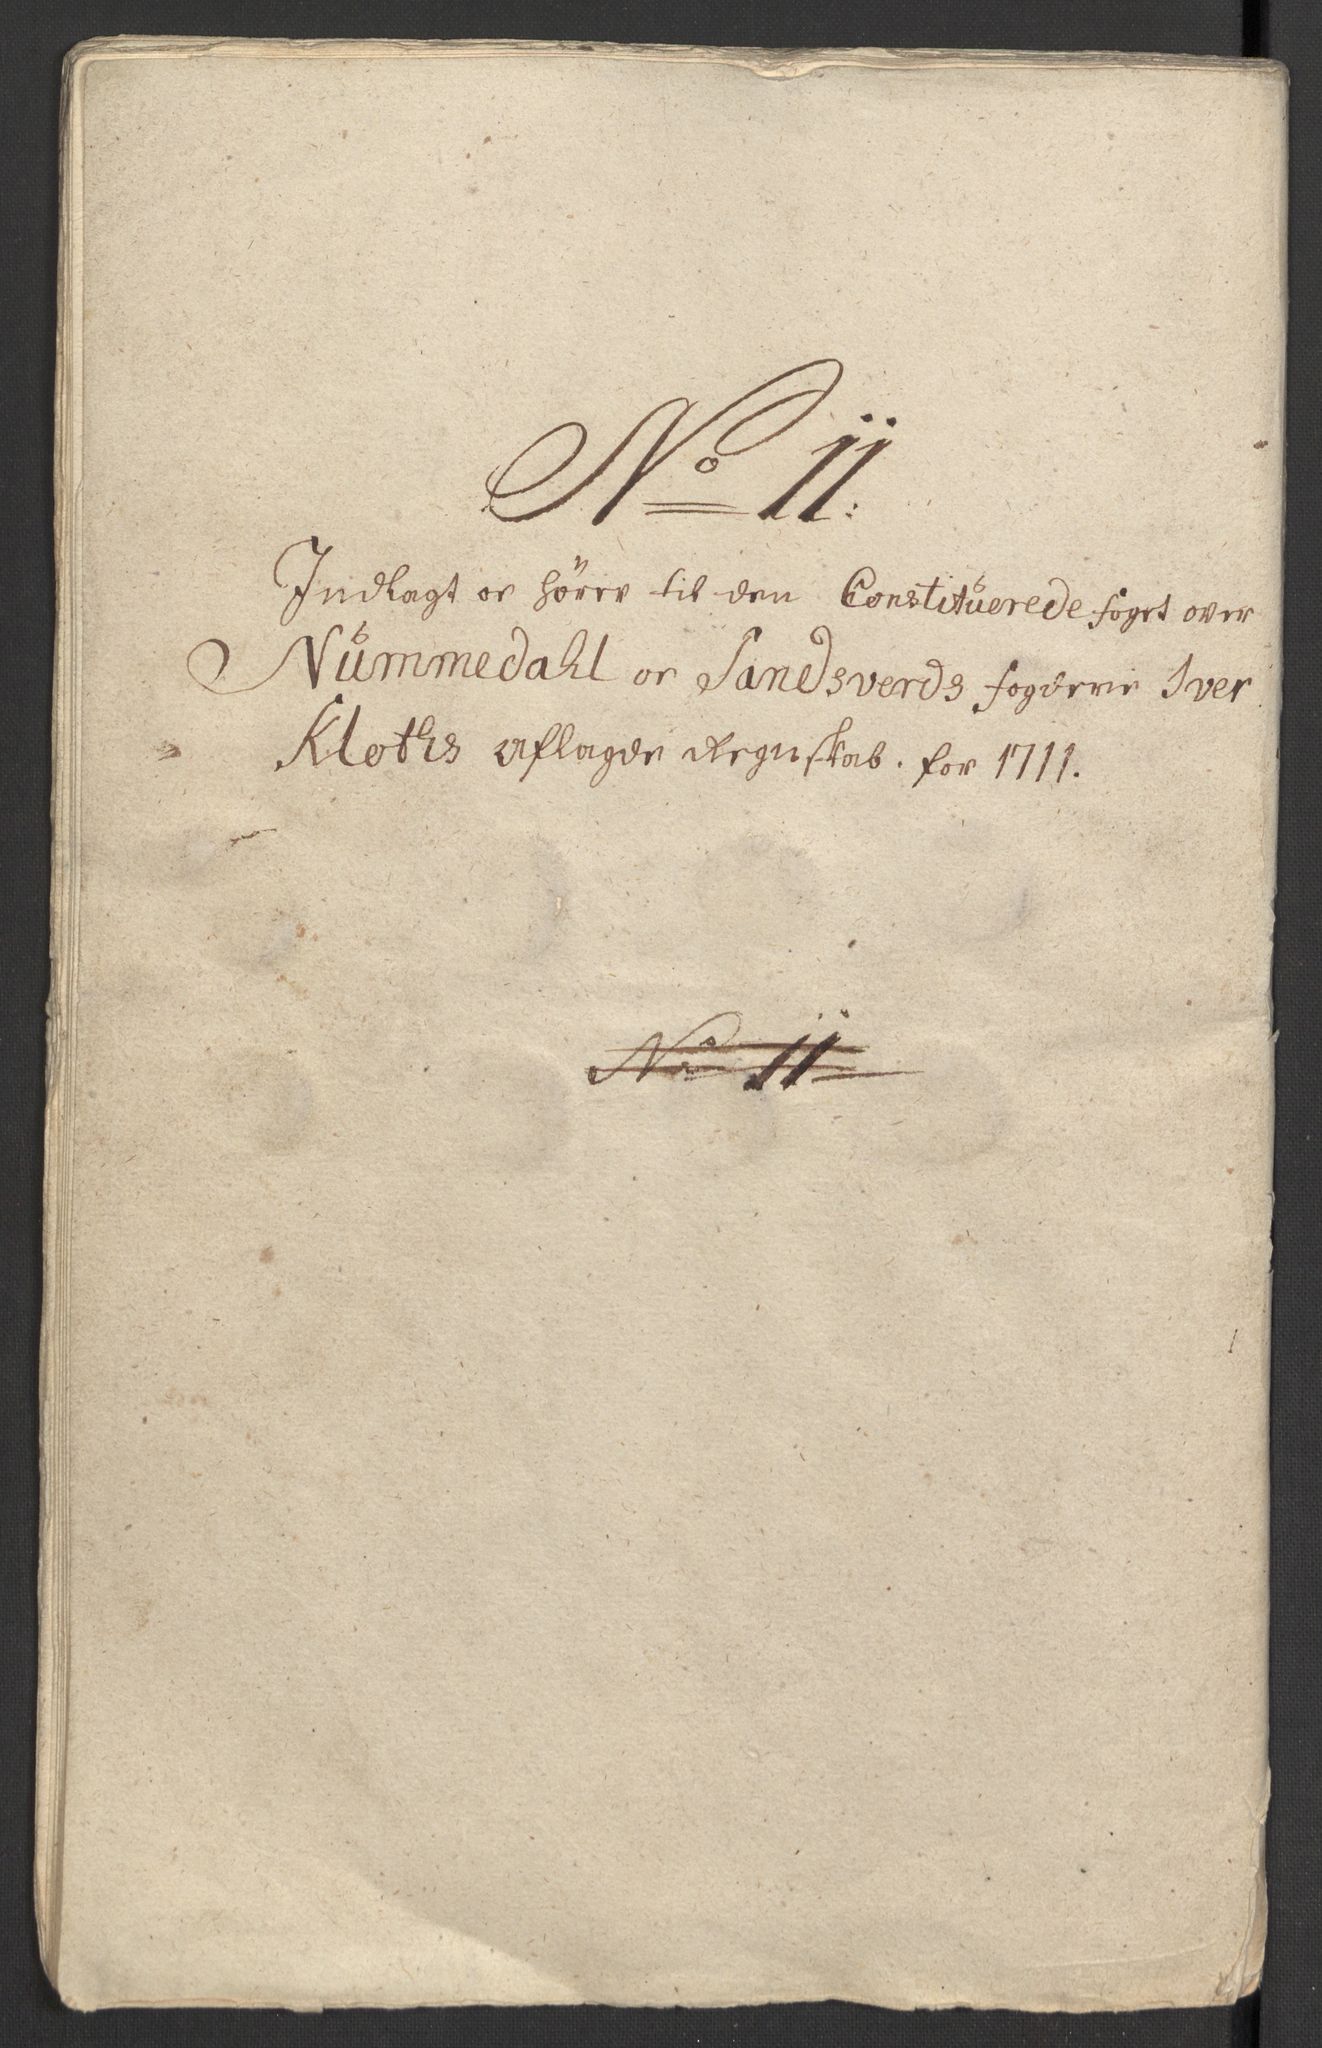 No 11:
Indlagt og hører til den Constituerede foget over
Nummedahl og Sandsverds fogderie Iver
Kloths aflagde Regnskab. for 1711.
No 11